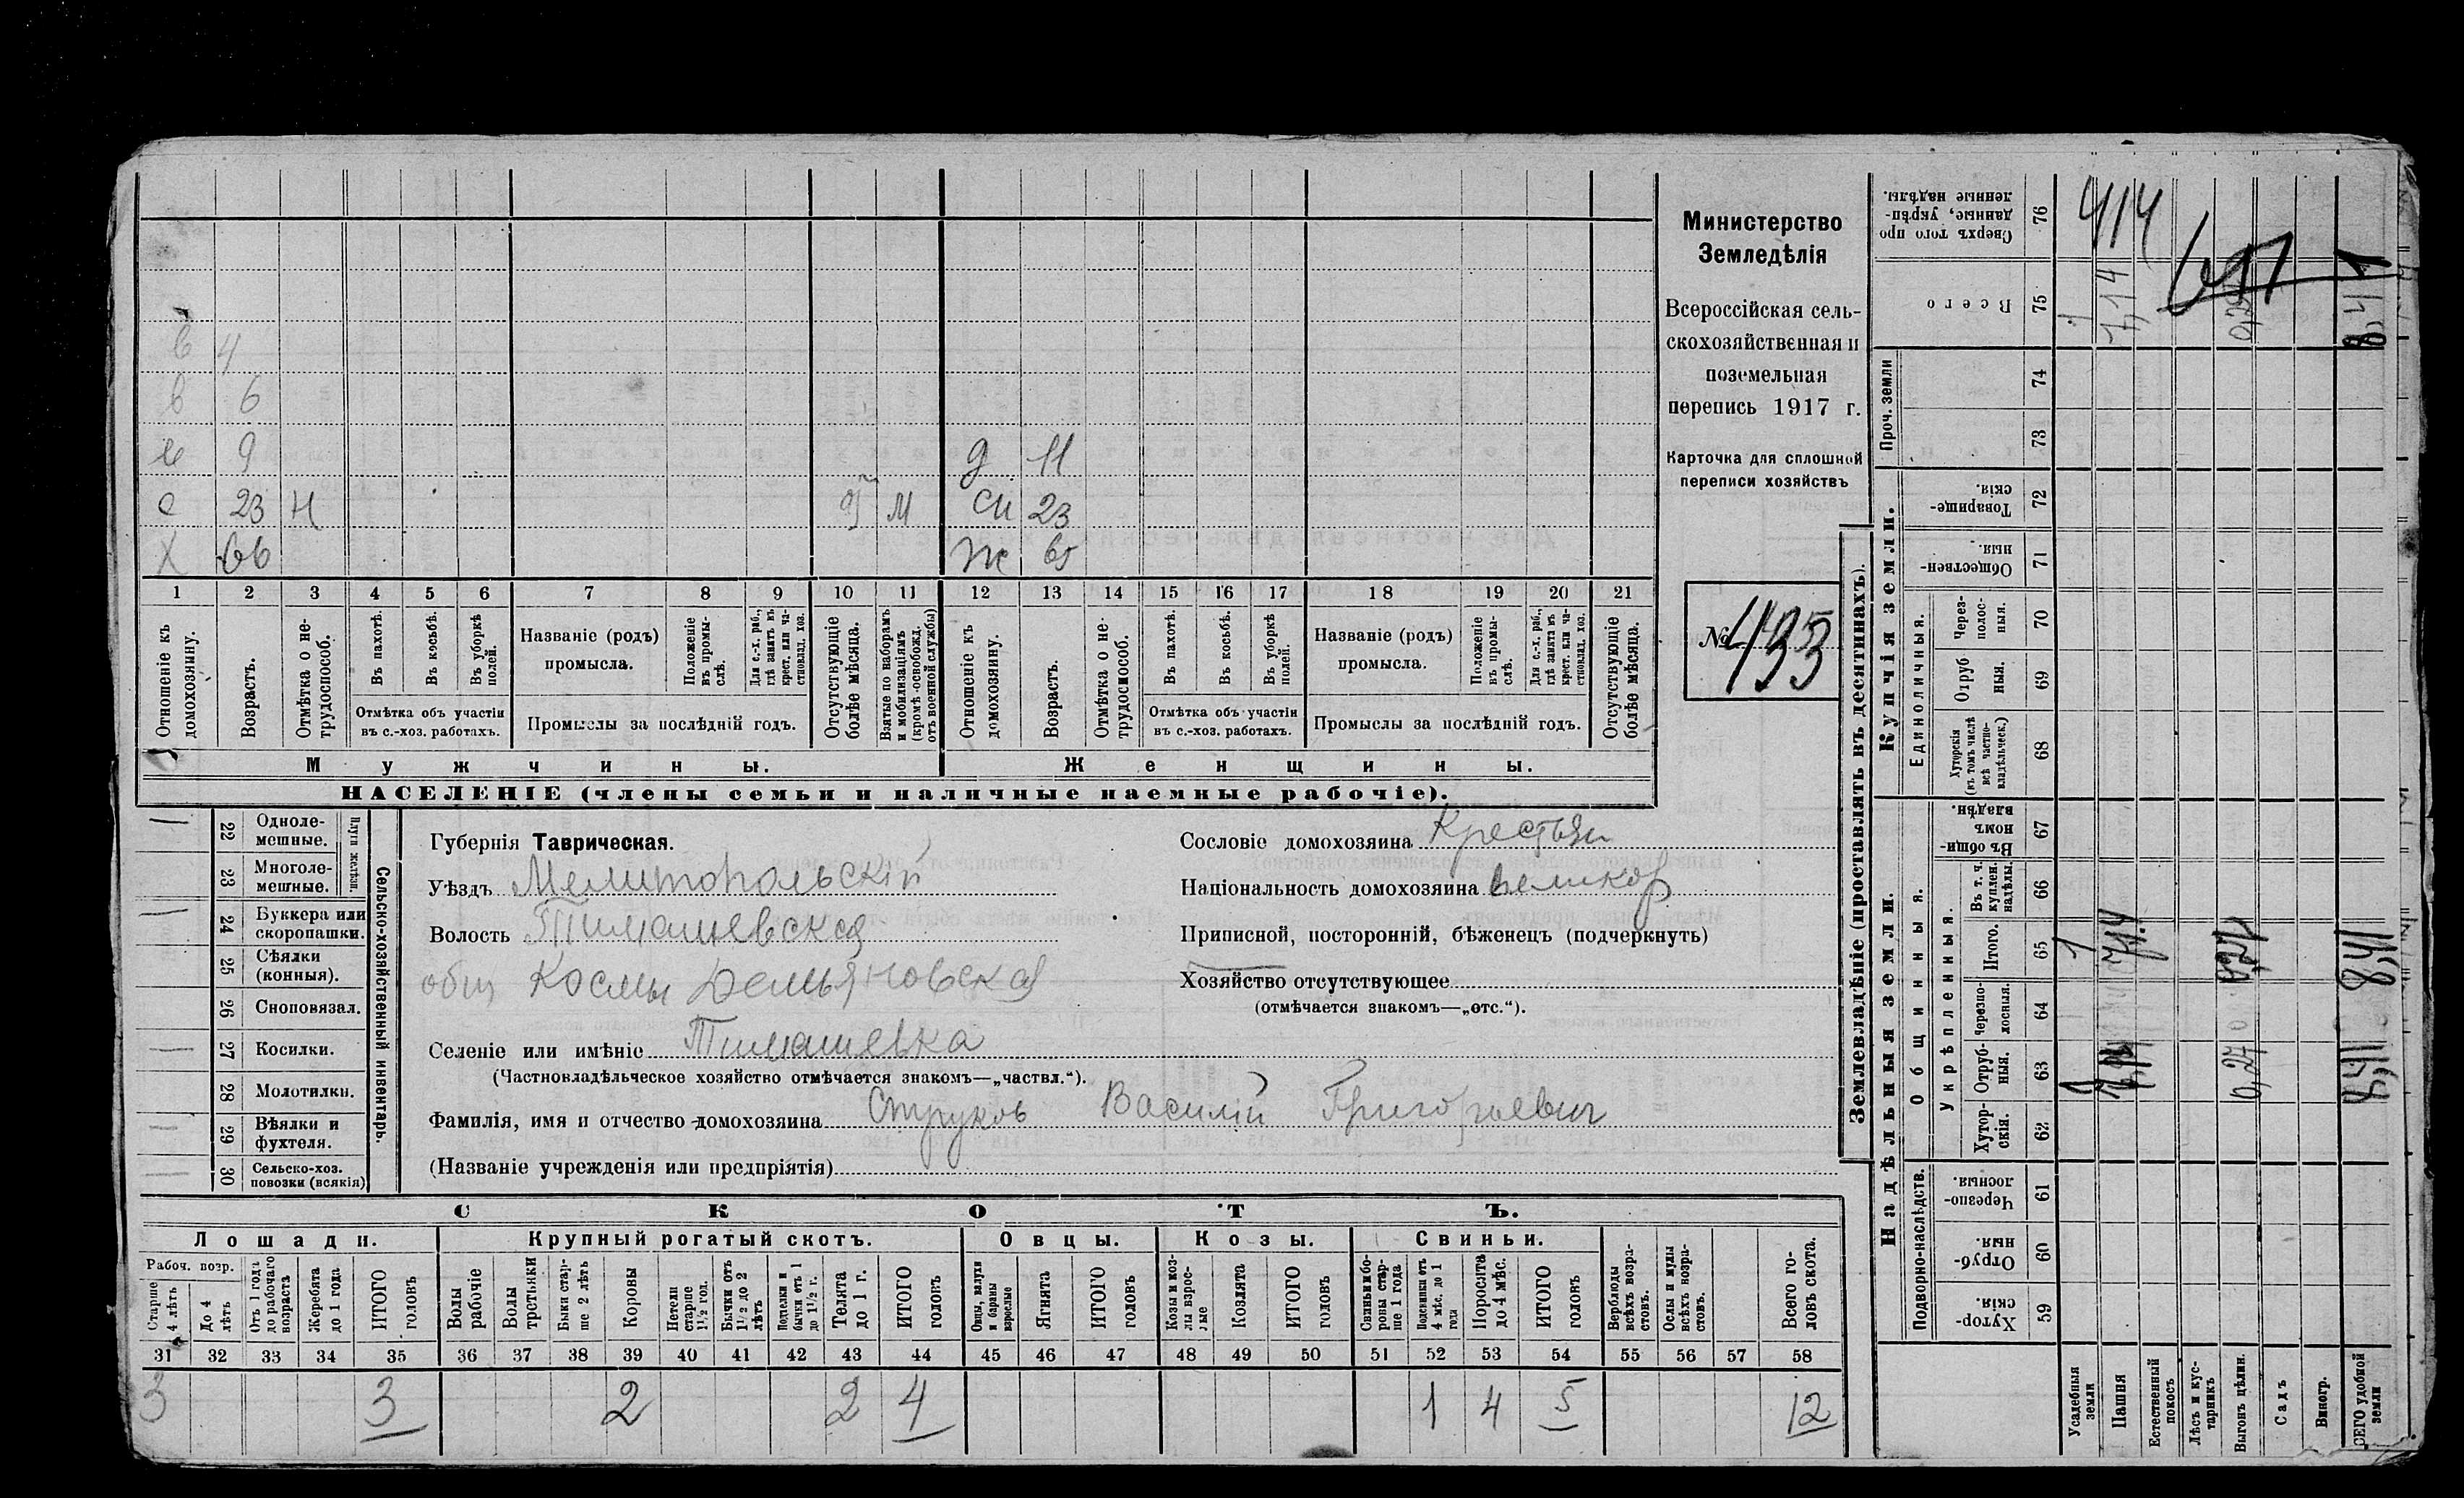 Министерство
Земледѣлія
Всероссійская сель-
скохозяйственная и
поземельная
перепись 1917 г.
Карточка для сплошной
переписи хозяйствъ
№ 433
в 4
в 6
в 9 д 11
с 23 Н М сн 23
Х 66 ж 65
1 2 3 4 5 6 7 8 9 10 11 12 13 14 15 16 17 18 19 20 21
Отношеніе къ домохозяину.
Возрастъ.
Отмѣтка о не-трудоспособ.
Въ пахотѣ.
Въ косьбѣ.
Въ уборкѣ полей.
Отмѣтка объ участіи въ с.-хоз. работахъ.
Названіе (родъ) промысла.
Положеніе въ промы-слѣ.
Для с.-х. раб., гдѣ занятъ въ крест. или ча-стновлад. хоз.
Промыслы за послѣдній годъ.
Отсутствующіе болѣе мѣсяца.
Взятые по наборамъ и мобилизаціямъ (кромѣ освобожд. отъ военной службы)
Отношеніе къ домохозяину.
Возрастъ.
Отмѣтка о не-трудоспособ.
Въ пахотѣ.
Въ косьбѣ.
Въ уборкѣ полей.
Отмѣтка объ участіи въ с.-хоз. работахъ.
Названіе (родъ) промысла.
Положеніе въ промы-слѣ.
Для с.-х. раб., гдѣ занята въ крест. или ча-стновлад. хоз.
Промыслы за послѣдній годъ.
Отсутствующіе болѣе мѣсяца.
Мужчины. Женщины.
НАСЕЛЕНІЕ (члены семьи и наличные наемные рабочіе).
Сельско-хозяйственный инвентарь.
Плуги желѣзн.
22 Одноле-мешные.
23 Многоле-мешные.
24 Буккера или скоропашки.
25 Сѣялки (конныя).
26 Сноповязал.
27 Косилки.
28 Молотилки.
29 Вѣялки и фухтеля.
30 Сельско-хоз. повозки (всякія)
Губернія Таврическая.
Уѣздъ Мелитопольскій
Волость Тимашевская
общ Космы Демьяновская
Селеніе или имѣніе Тимашевка
(Частновладѣльческое хозяйство отмѣчается знакомъ—„частвл.“).
Фамилія, имя и отчество домохозяина Струков Василій Григорьевич
(Названіе учрежденія или предпріятія)
Сословіе домохозяина Крестьян
Національность домохозяина великор
Приписной, посторонній, бѣженецъ (подчеркнуть)
Хозяйство отсутствующее
(отмѣчается знакомъ—„отс.“).
СКОТЪ.
Лошади. Крупный рогатый скотъ. Овцы. Козы. Свиньи.
Рабоч. возр.
Старше 4 лѣтъ
До 4 лѣтъ
Отъ 1 года до рабочаго возраста
Жеребята до 1 года
ИТОГО головъ
Волы рабочіе
Волы третьяки
Быки стар-ше 2 лѣтъ
Коровы
Нетели старше 1½ год.
Бычки отъ 1½ до 2 лѣтъ
Подтелки и бычки отъ 1 до 1½ г.
Телята до 1 г.
ИТОГО головъ
Овцы, валухи и бараны взрослые
Ягнята
ИТОГО головъ
Козы и коз-лы взрос-лые
Козлята
ИТОГО головъ
Свиньи и бо-ровы стар-ше 1 года
Подсвинки отъ 4 мѣс. до 1 года
Поросята до 4 мѣс.
ИТОГО головъ
Верблюды всѣхъ возра-стовъ.
Ослы и мулы всѣхъ возра-стовъ.
Всего го-ловъ скота.
31 32 33 34 35 36 37 38 39 40 41 42 43 44 45 46 47 48 49 50 51 52 53 54 55 56 57 58
3 3 2 2 4 1 4 5 12
Землевладѣніе (проставлять въ десятинахъ).
Надѣльныя земли. Купчія земли. Проч. земли
Подворно-наслѣдств.
Общинныя.
Укрѣпленныя.
Единоличныя.
Хутор-скія. 59
Отруб-ныя. 60
Черезпо-лосныя. 61
Хутор-скія. 62
Отруб-ныя. 63
Черезпо-лосныя. 64
Итого. 65
Въ т. ч. куплен. надѣлы. 66
Въ общи-номъ владѣн. 67
Хуторскія (въ томъ числѣ всѣ частно-владѣльческ.) 68
Отруб ныя. 69
Через-полос-ныя. 70
Обществен-ныя. 71
Товарище-скія. 72
73
74
Всего 75
Сверхъ того про-данные, укрѣп-ленные надѣлы. 76
Усадебныя земли
Пашня
Естественный покосъ
Лѣсъ и кус-тарникъ
Выгонъ цѣлин.
Садъ
Виногр.
ВСЕГО удобной земли
414
1 7,14 8,41
1 8,41
0,27 8,41